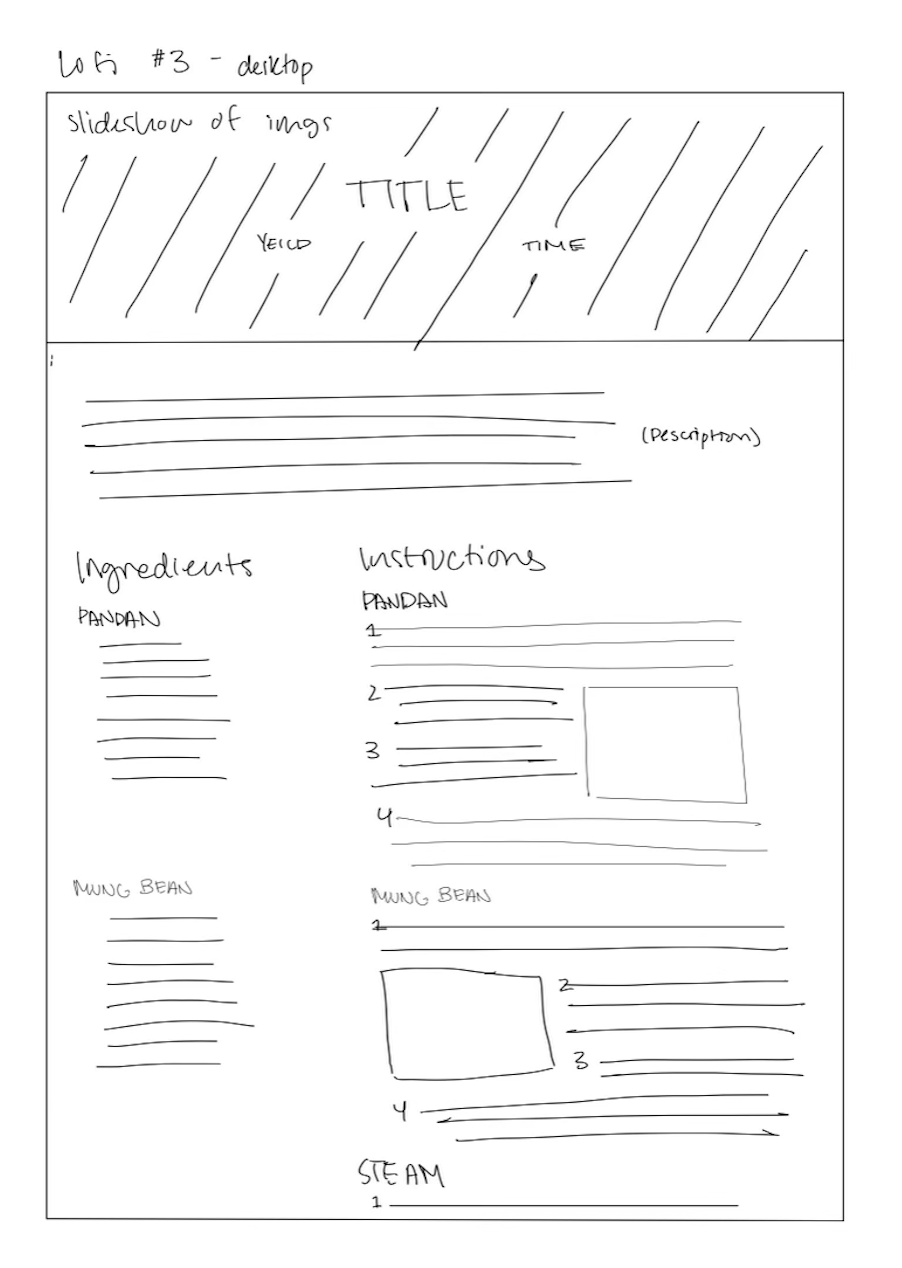 Lofi #3 - desktop
slideshow of imgs
TITLE
YEILD
TIME
(Description)
Ingredients
PANDAN
MUNG BEAN
Instructions
PANDAN
1
2
3
4
MUNG BEAN
1
2
3
4
STEAM
1